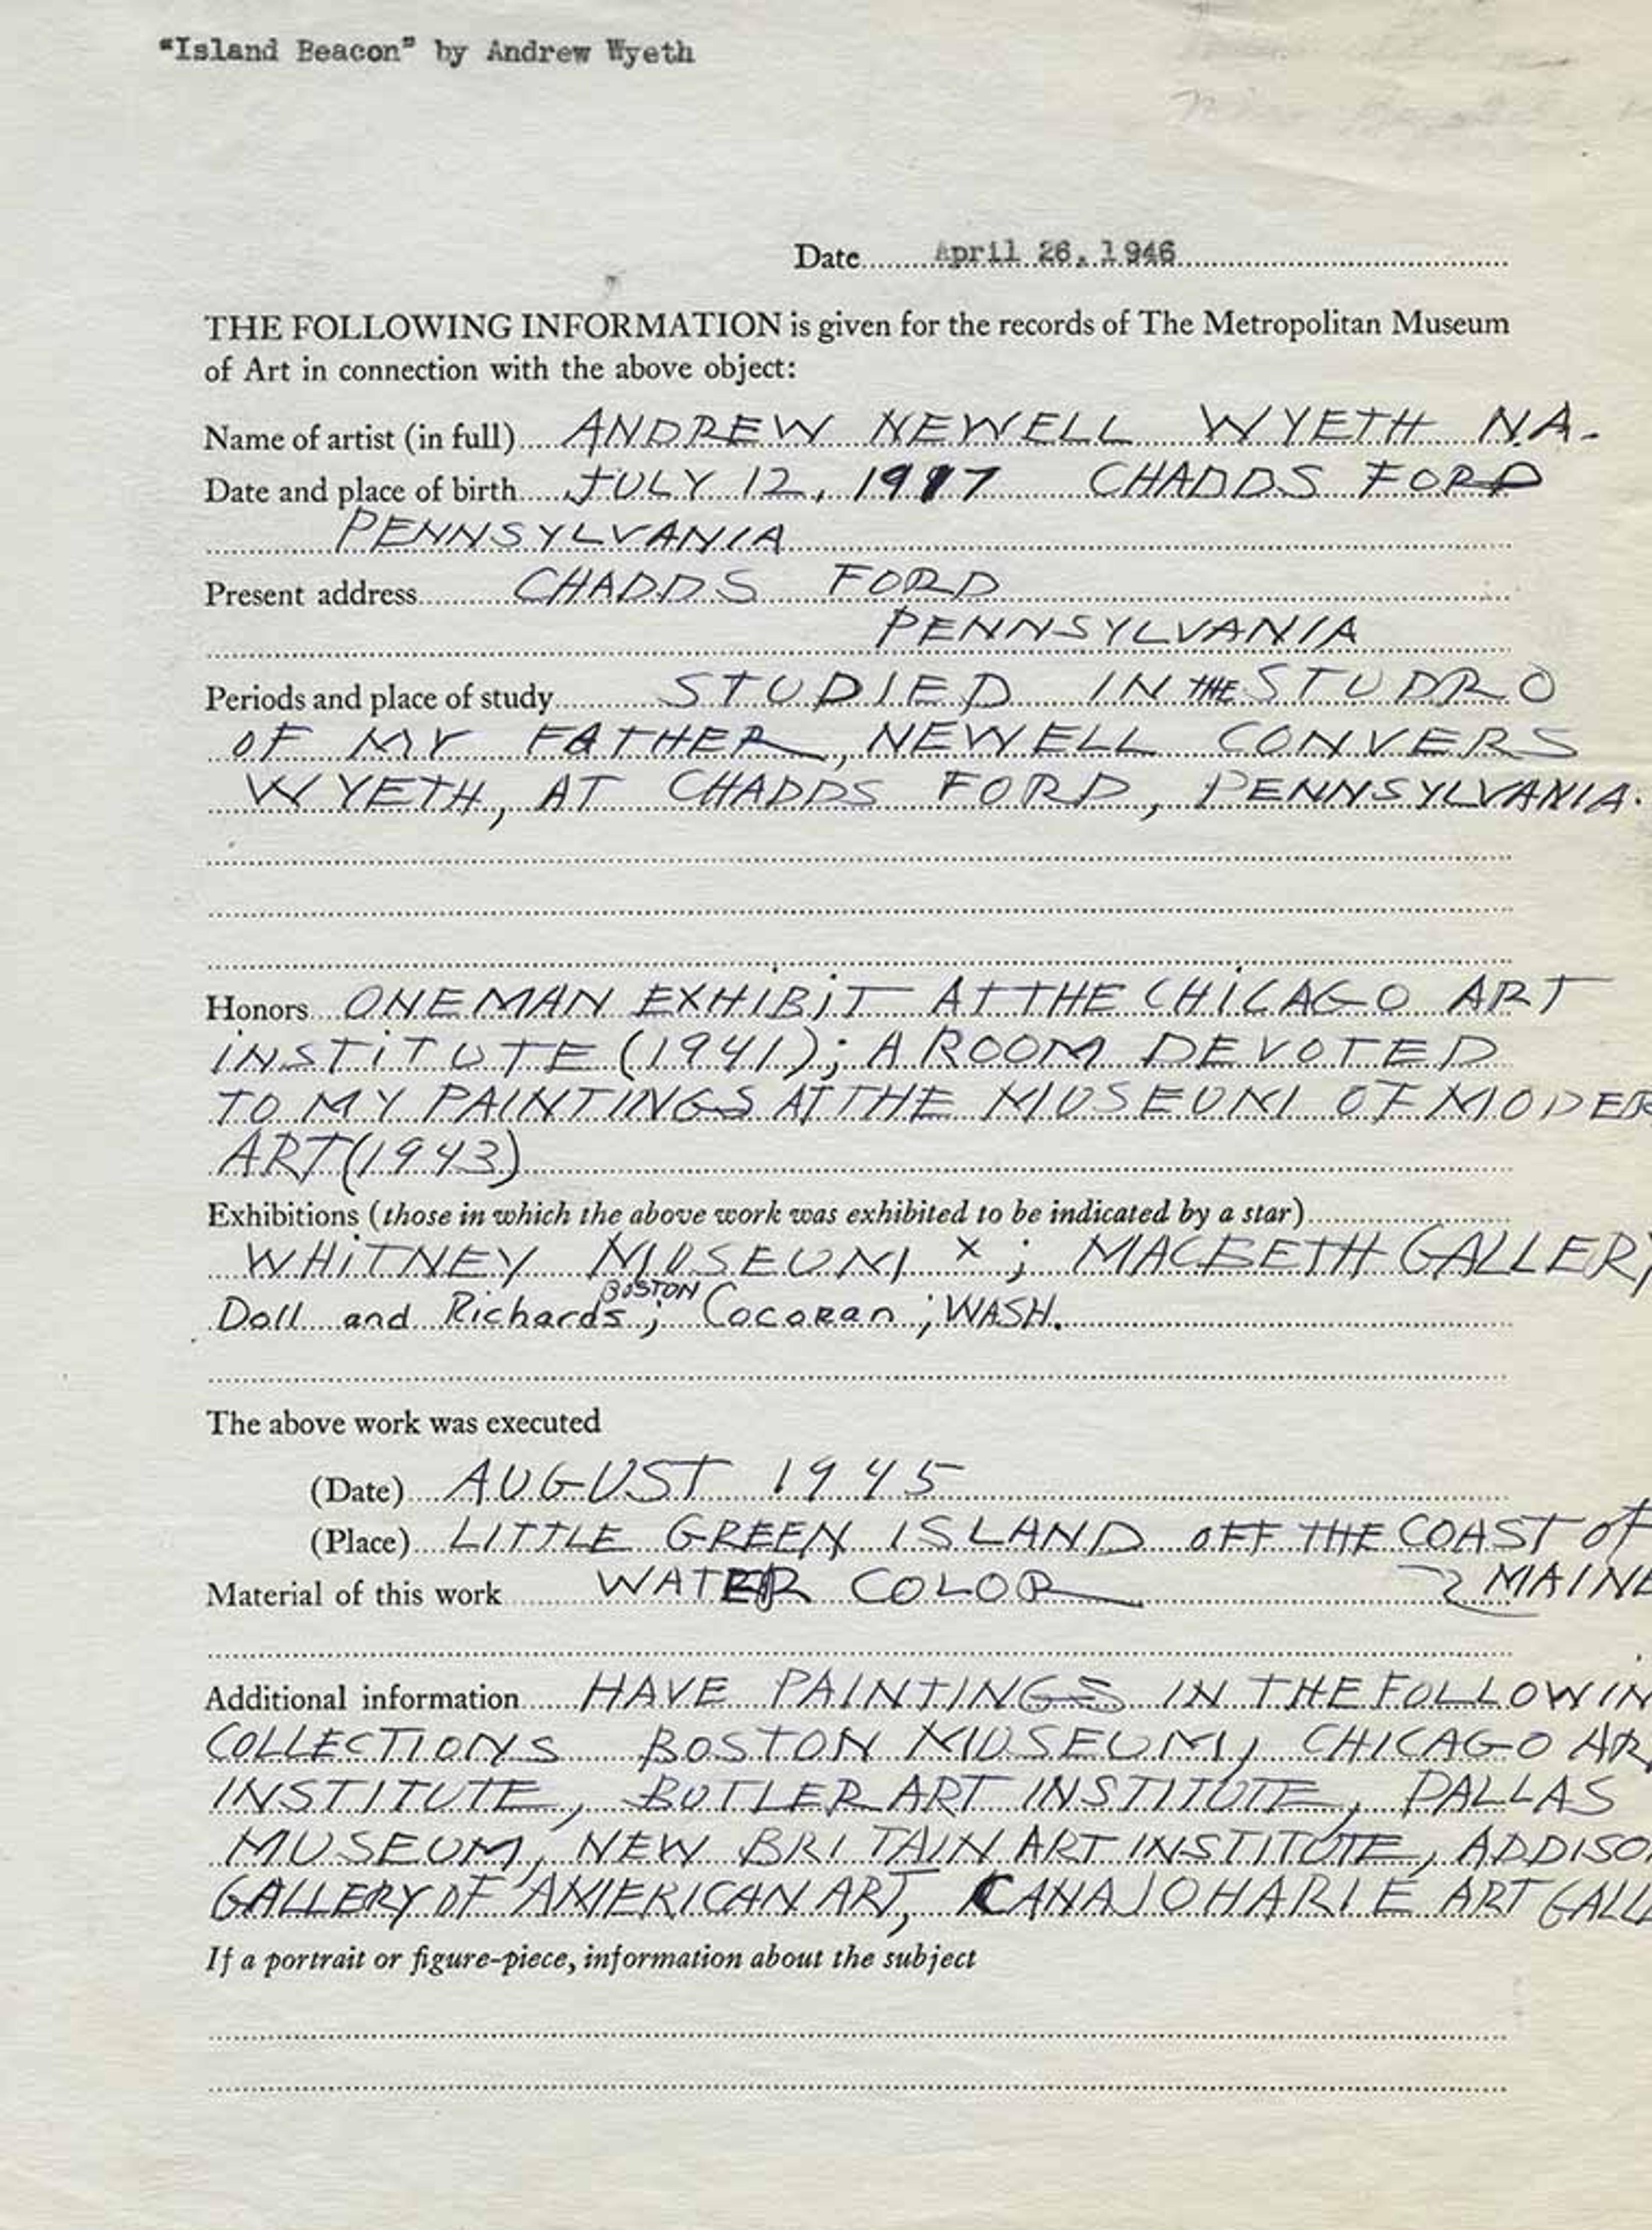 "Island Beacon" by Andrew Wyeth
Date April 26, 1946
THE FOLLOWING INFORMATION is given for the records of The Metropolitan Museum
of Art in connection with the above object:
Name of artist (in full) ANDREW NEWELL WYETH N.A.
Date and place of birth JULY 12, 1917 CHADDS FORD
PENNSYLVANIA
Present address CHADDS FORD
PENNSYLVANIA
Periods and place of study STUDIED IN THE STUDRO
OF MY FATHER, NEWELL CONVERS
WYETH, AT CHADDS FORD, PENNSYLVANIA.
Honors ONE MAN EXHIBIT AT THE CHICAGO ART
INSTITUTE (1941); A ROOM DEVOTED
TO MY PAINTINGS AT THE MUSEUM OF MODER
ART (1943)
Exhibitions (those in which the above work was exhibited to be indicated by a star)
WHITNEY MUSEUM x; MACBETH GALLERY
BOSTON
Doll and Richards; Cocoran; WASH.
The above work was executed
(Date) AUGUST 1945
(Place) LITTLE GREEN ISLAND OFF THE COAST OF
MAINE
Material of this work WATER COLOR
Additional information HAVE PAINTINGS IN THE FOLLOWIN
COLLECTIONS BOSTON MUSEUM, CHICAGO AR
INSTITUTE, BUTLER ART INSTITUTE, DALLAS
MUSEUM, NEW BRITAIN ART INSTITUTE, ADDISO
GALLERY OF AMERICAN ART, CANAJOHARIE ART GALL
If a portrait or figure-piece, information about the subject